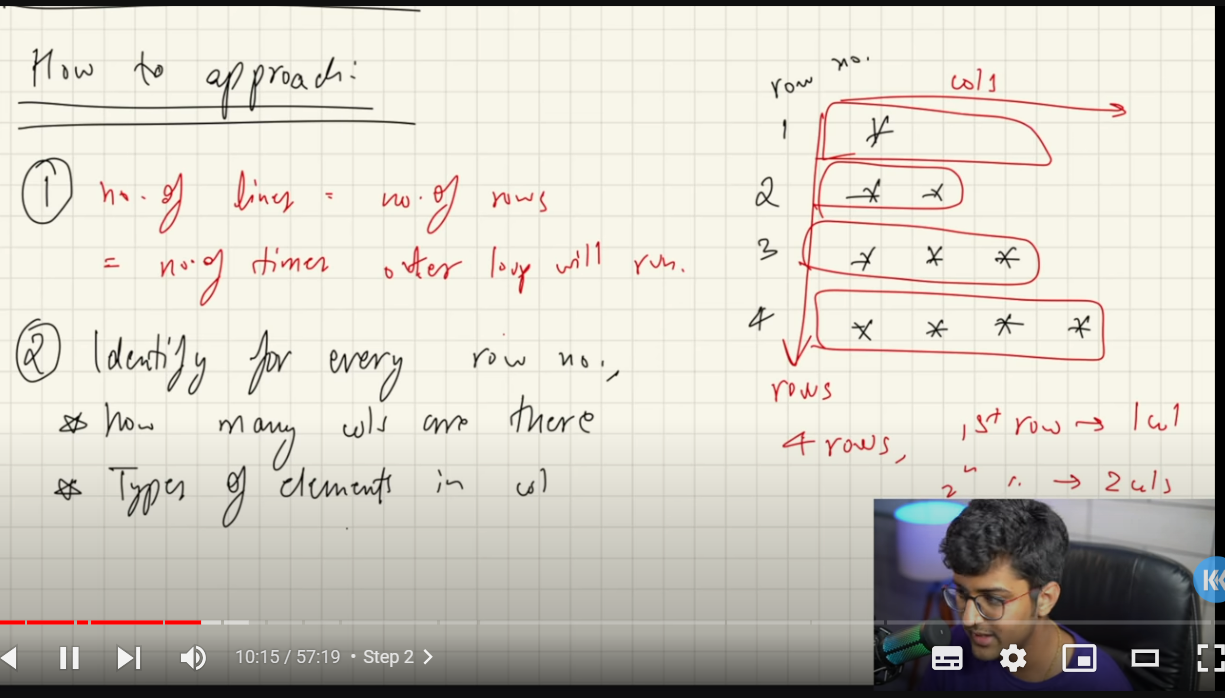 How to approach:
① no. of lines = no. of rows
= no. of times outer loop will run.
② Identify for every row no.,
* how many cols are there
* Types of elements in col
row no.
cols
1 *
2 * *
3 * * *
4 * * * *
rows
4 rows,
1st row → 1 col
2nd " → 2 cols
10:15 / 57:19 • Step 2 >